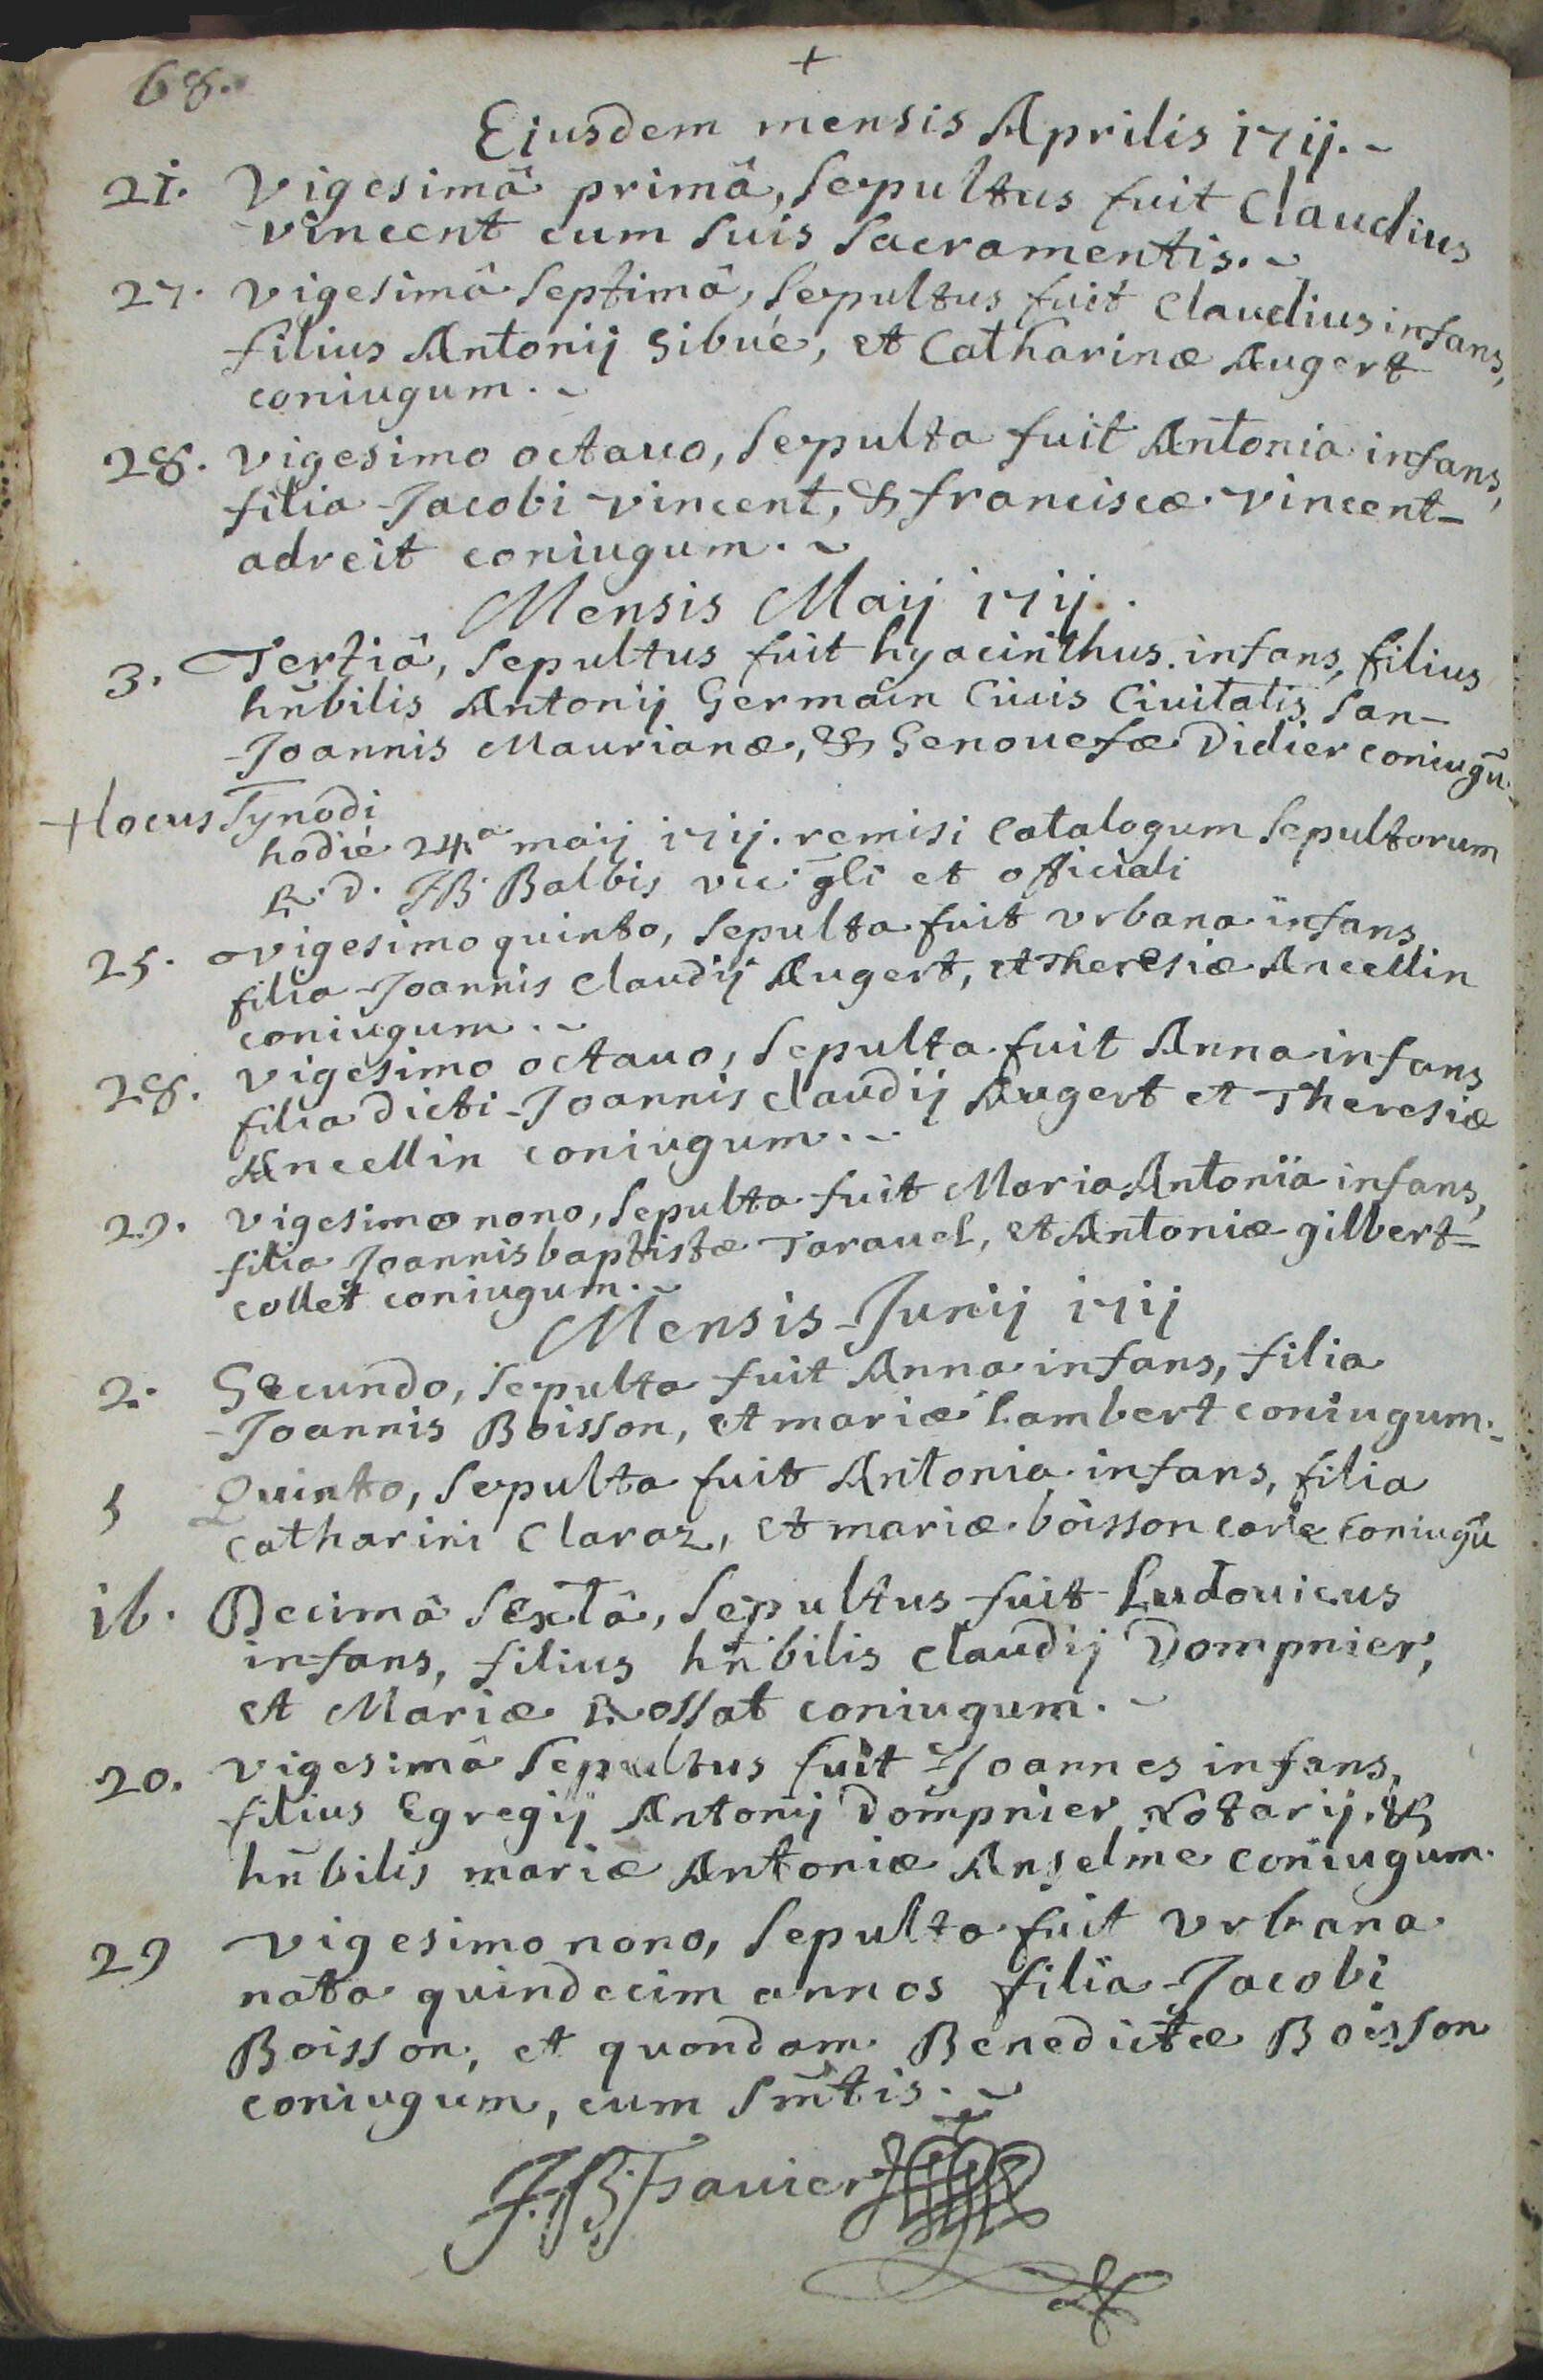 68.
+
Ejusdem mensis Aprilis 1711.
21. Vigesimâ primâ, Sepultus fuit Claudius
vincent cum suis Sacramentis.
27. vigesimâ Septimâ, Sepultus fuit Claudius infans,
filius Antonij Sibué, et Catharinæ Augert
coniugum.
28. vigesimo octavo, Sepulta fuit Antonia infans,
filia Jacobi vincent, & franciscæ vincent-
adreit coniugum.
Mensis Maij 1711.
3. Tertiâ, Sepultus fuit hyacinthus infans, filius
hn̄bilis Antonij Germain Civis Civitatis San-
Joannis Maurianæ, & Genouefæ Didier coniugū.
+ locus Synodi
hodie 24ª maij 1711. remisi Catalogum Sepultorum
R. d. JB Balbis vic. gl̄i et officiali
25. vigesimo quinto, Sepulta fuit vrbana infans
filia Joannis Claudij Augert, et Theresiæ Ancellin
coniugum.
28. vigesimo octauo, Sepulta fuit Anna infans
filia dicti Joannis claudij Augert et Theresiæ
Ancellin coniugum.
29. vigesimo nono, Sepulta fuit Maria Antonia infans,
filia Joannisbaptistæ Tarauel, et Antoniæ gilbert-
collet coniugum.
Mensis Junij 1711
2. Secundo, Sepulta fuit Anna infans, filia
Joannis Boisson, et mariæ Lambert coniugum.
5 Quinto, Sepulta fuit Antonia infans, filia
Catharini Claraz, et mariæ boisson coniugū
16. Decimâ Sextâ, Sepultus fuit Ludouicus
infans, filius hn̄bilis Claudij Dompnier,
et Mariæ Rossat coniugum.
20. vigesimâ Sepultus fuit Joannes infans,
filius Egregij Antonij Dompnier Notarij, &
hn̄bilis mariæ Antoniæ Anselme coniugum.
29 vigesimo nono, Sepulta fuit vrbana
nata quindecim annos filia Jacobi
Boisson, et quondam Benedictæ Boisson
coniugum, cum Sm̄tis.